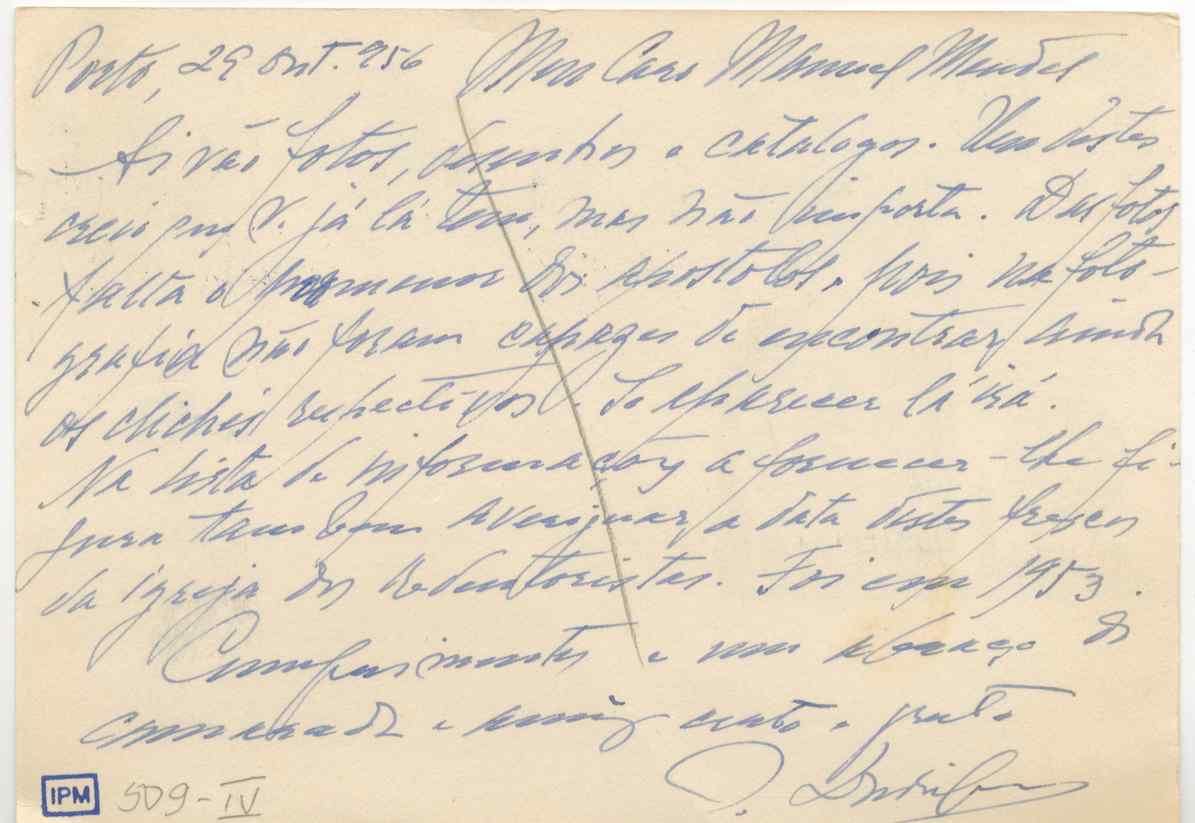 Porto, 29 Out. 956 Meu Caro Manuel Mendes
Aí vão fotos, desenhos e catalogos. Um destes
creio que V. já lá tem, mas não importa. Das fotos
falta o pormenor dos apostolos, pois na foto-
grafia não foram capazes de encontrar ainda
os clichés respectivos. Se aparecer lá irá.
Na lista de informações a fornecer-lhe fi-
gura tambem averiguar a data destes frescos
da igreja dos Redentoristas. Foi em 1953.
Cumprimentos e um abraço do
camarada e amigo certo e grato
IPM 509-IV